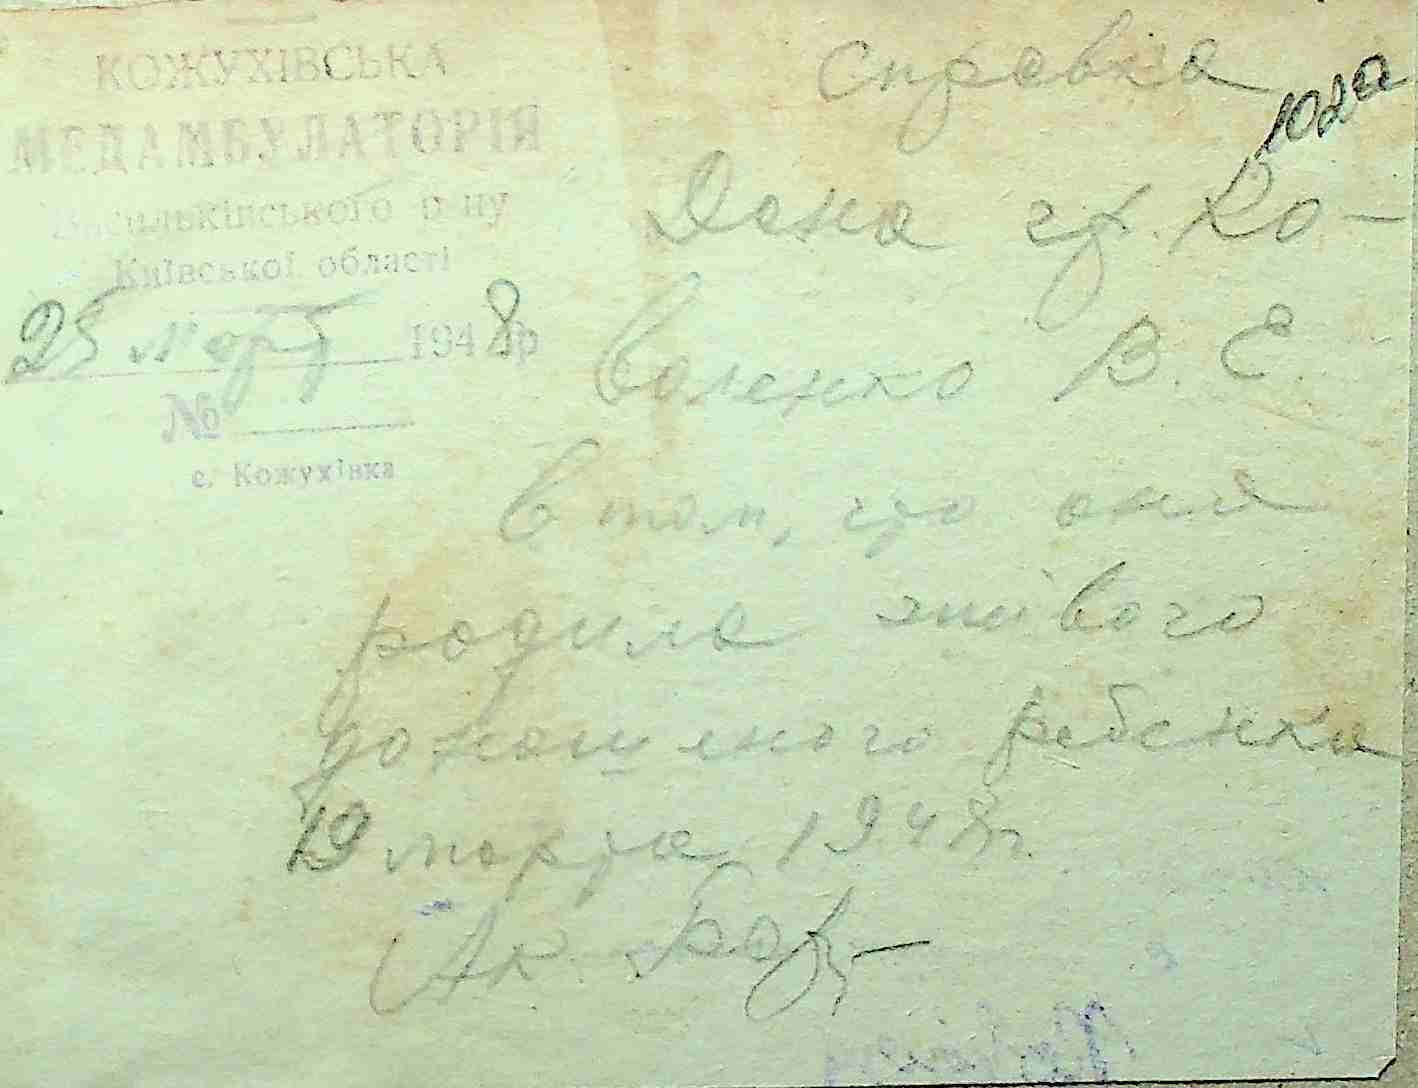 КОЖУХІВСЬКА
МЕДАМБУЛАТОРІЯ
Васильківського р ну
Київської області
25 март 1948 р
№
с. Кожухівка
Справка
102а
Дана гр. Ко-
валенко В. Е.
в том, что она
родила живого
доношеного ребенка
19 марта 1948 г.
Ак.